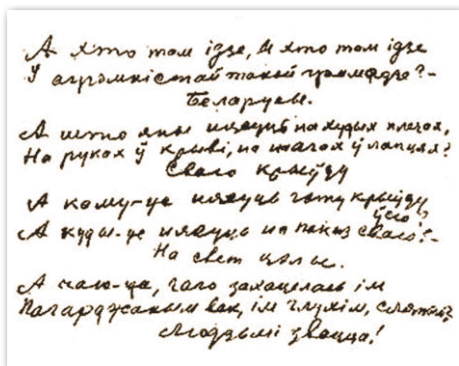 А хто там ідзе, А хто там ідзе
У агромністай такой грамадзе?–
Беларусы.
А што яны нясуць на худых плечах,
На руках ў крыві, на нагах ў лапцях?
Сваю крыўду
А куды-жа нясуць гэту крыўду
ўсю,
А куды-жа нясуць на паказ сваю?–
На свет цэлы.
А чаго-жа, чаго захацелась ім
Пагарджаным век, ім глухім, сляпым?
Людзьмі звацца!